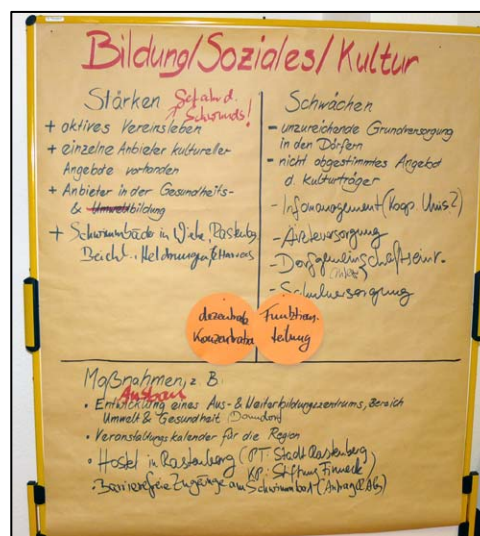 Bildung/Soziales/Kultur
Stärken Gefahr d.
Schwunds!
+ aktives Vereinsleben
+ einzelne Anbieter kultureller
Angebote vorhanden
+ Anbieter in der Gesundheits-
& Umweltbildung
+ Schwimmbäder in Wiehe, Rastenberg
Schwächen
- unzureichende Grundversorgung
in den Dörfern
- nicht abgestimmtes Angebot
d. Kulturträger
- Infomanagement (Koop. Unis?)
- Ärzteversorgung
- Dorfgemeinschaftseinr.
- Schulversorgung
dezentrale
Konzentration
Funktions-
teilung
Maßnahmen, z. B.
Ausbau
• Entwicklung eines Aus- & Weiterbildungszentrums, Bereich
Umwelt & Gesundheit (Donndorf)
• Veranstaltungskalender für die Region
• Hostel in Rastenberg (PT: Stadt Rastenberg
KP: Stiftung Finneck)
• Barrierefreie Zugänge am Schwimmbad